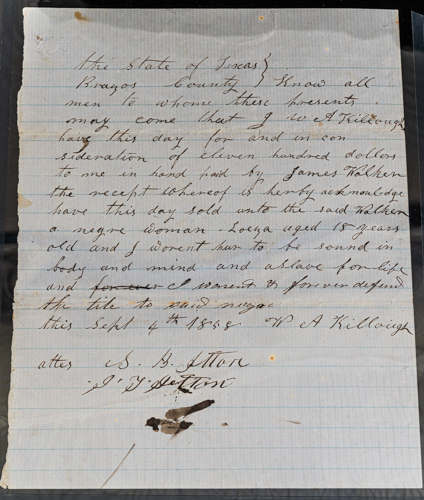 the State of Texas}
Brazos County} Know all
men to whome these presents
may come that I W A Killough
have this day for and in con
sideration of eleven hundred dollors
to me in hand paid by James Walker
the recept whereof is herby acknowledge
have this day sold unto the said Walker
a negre woman aged 18 years
old and I worent hur to be sound in
body and mind and aslave for life
and for ever I worent & forever defend
the tite to said negre
this Sept 4th 1858 W A Killough
attes S. B.